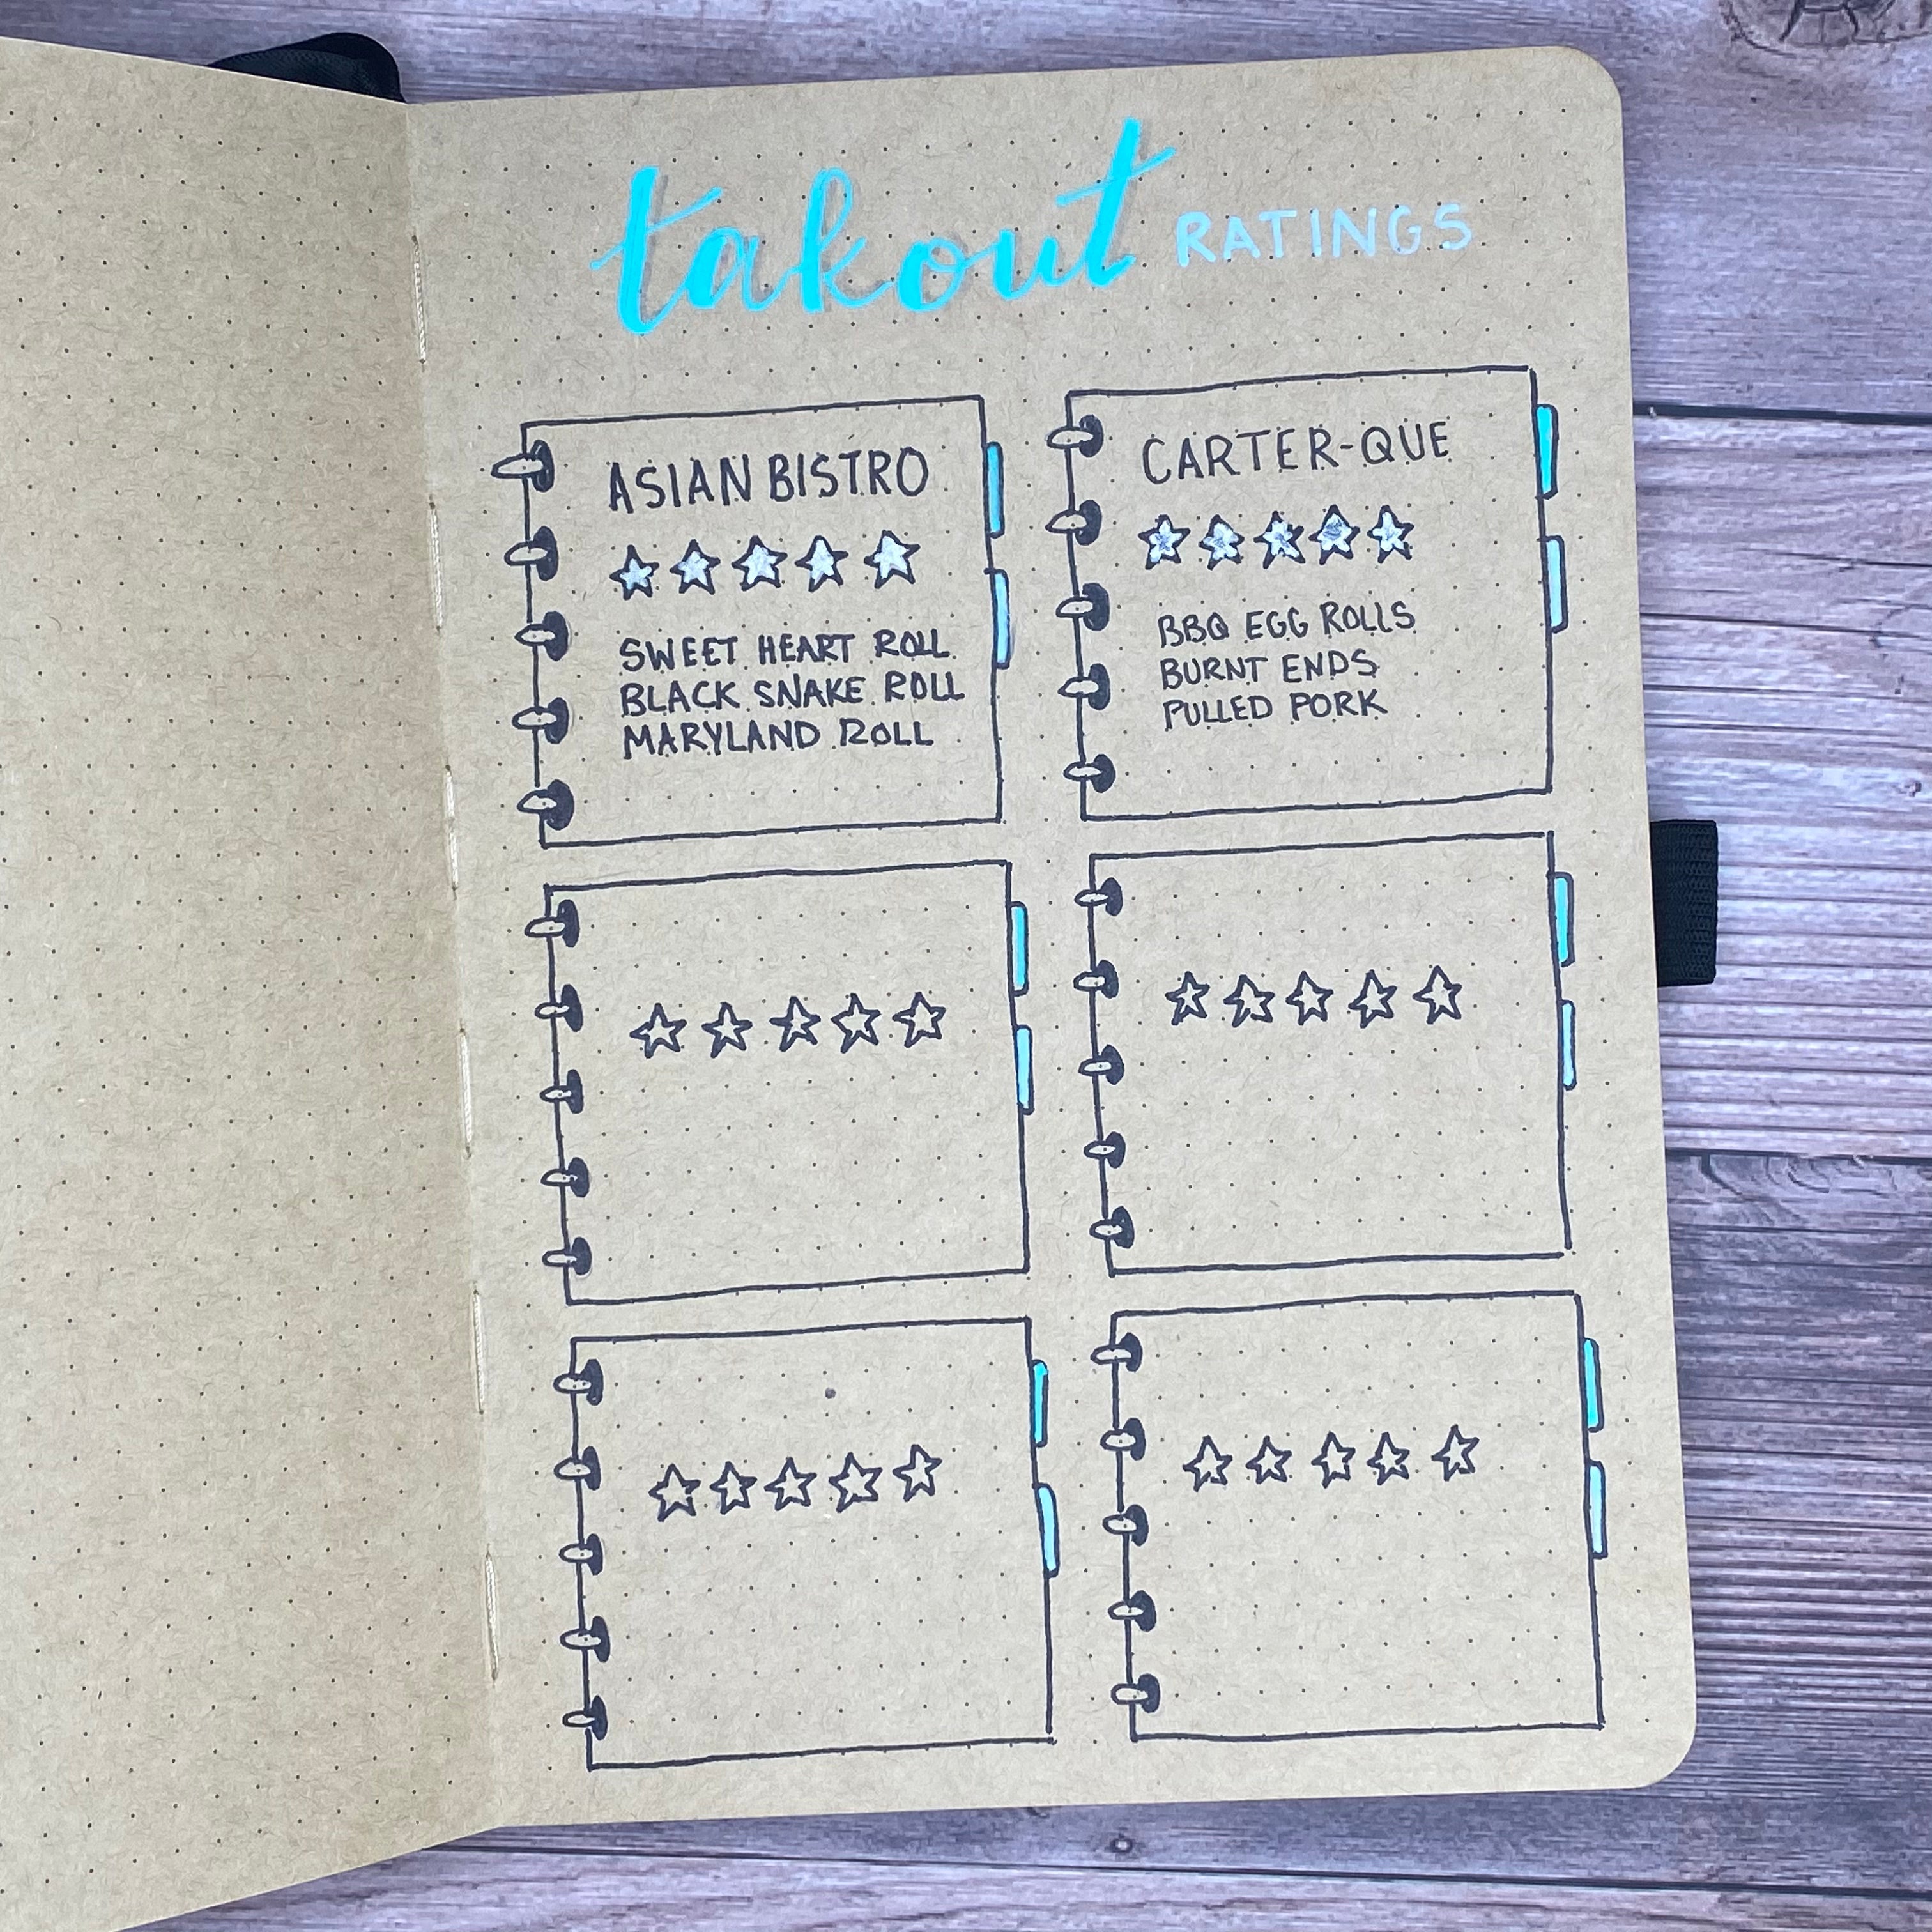 takout RATINGS
ASIAN BISTRO
SWEET HEART ROLL
BLACK SNAKE ROLL
MARYLAND ROLL
CARTER-QUE
BBQ EGG ROLLS
BURNT ENDS
PULLED PORK